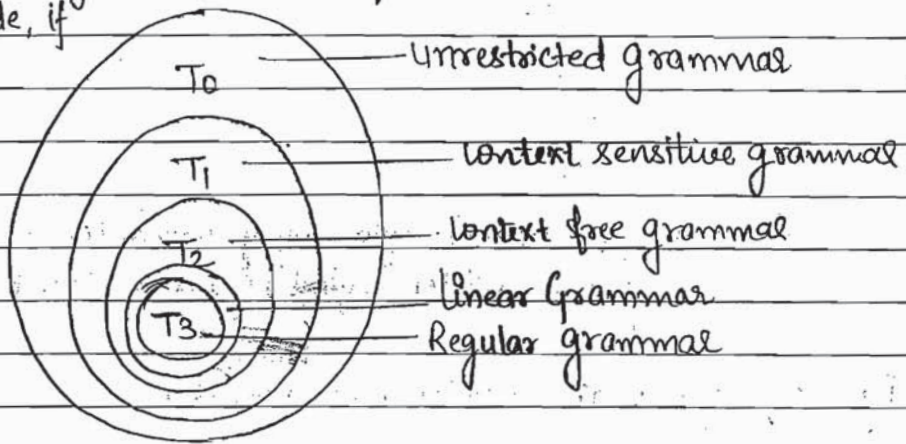 de, if
T0 unrestricted grammar
T1 context sensitive grammar
T2 context free grammar
Linear Grammar
T3 Regular grammar